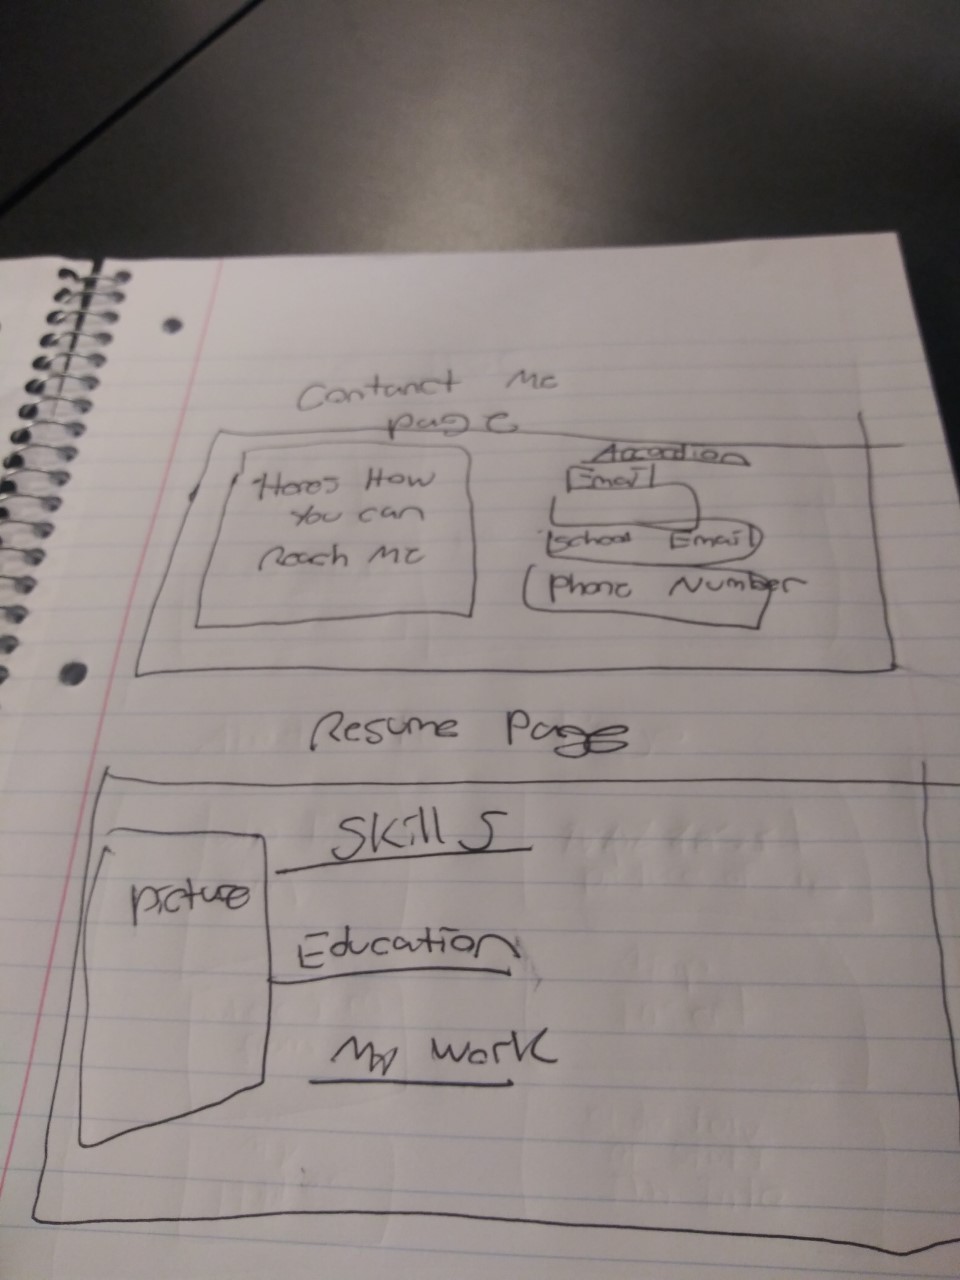 Contanct Me
page
Heres How
You can
Reach Me
Accordion
Email
School Email
Phone Number
Resume Page
Skills
Picture
Education
My Work